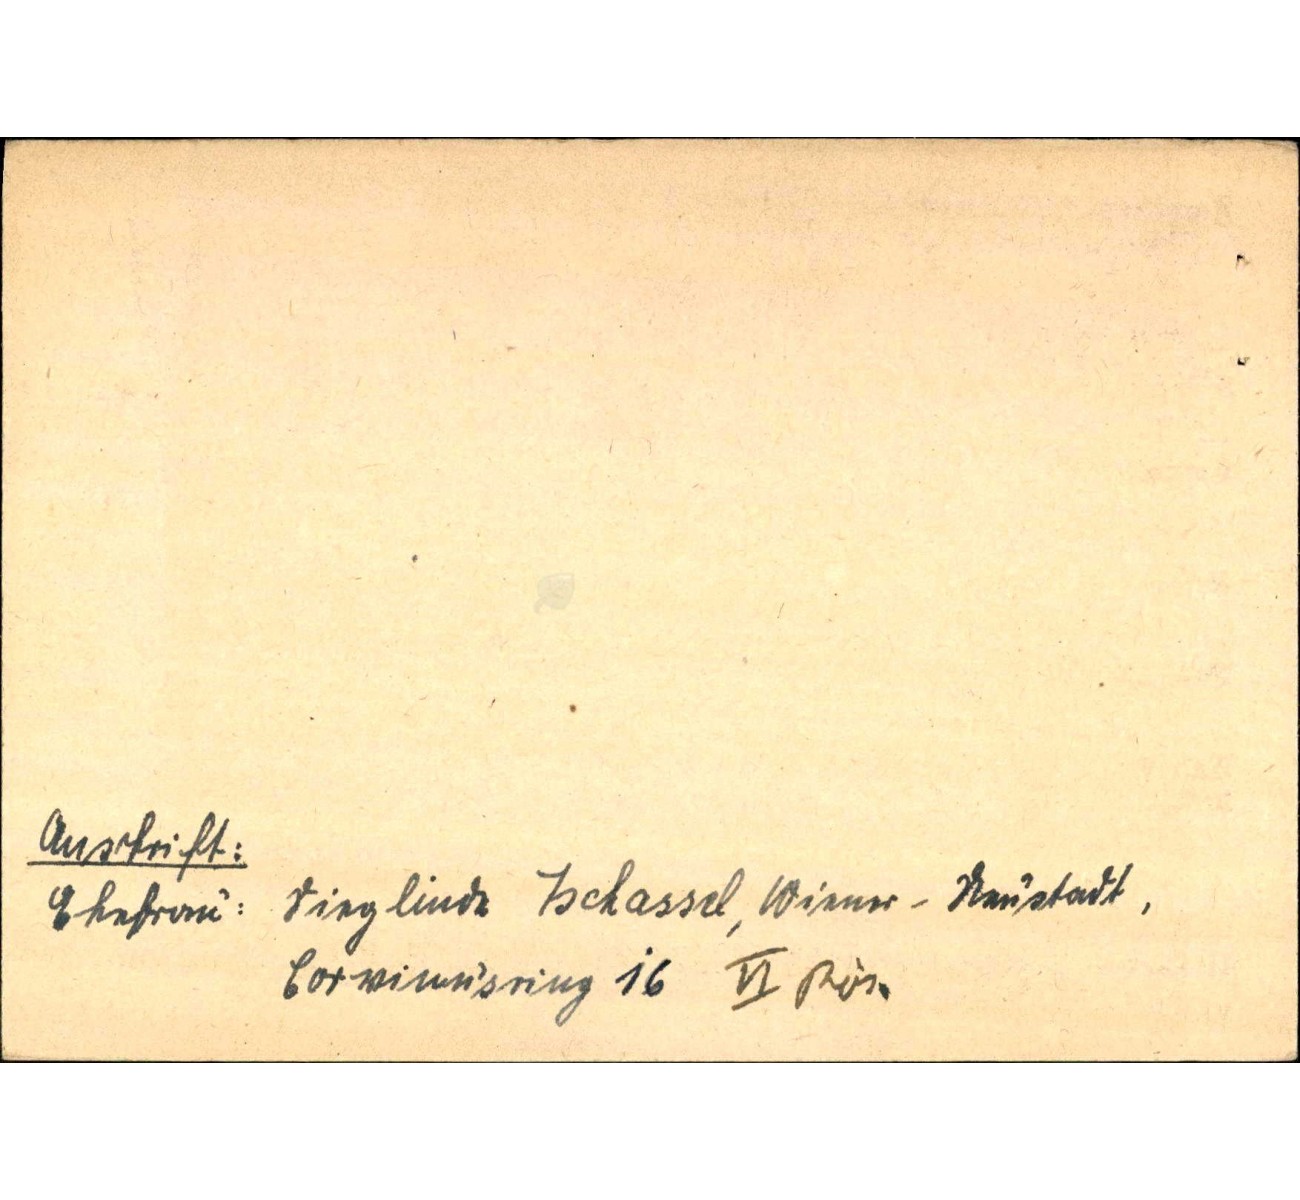 Anschrift:
Ehefrau: Sieglinde Tschassel, Wiener-Neustadt,
Corvinusring 16 VI